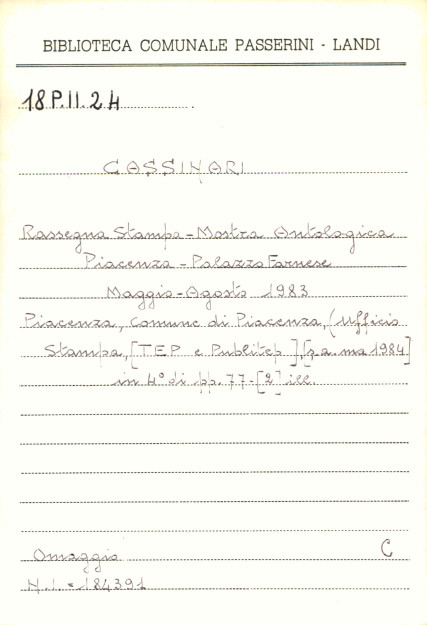 BIBLIOTECA COMUNALE PASSERINI - LANDI
18P.II.24
CASSINARI
Rassegna Stampa - Mostra Antologica
Piacenza - Palazzo Farnese
Maggio - Agosto 1983
Piacenza, comune di Piacenza, (Ufficio
Stampa, [TEP e Publitep], [s.a. ma 1984]
in 4° di pp. 77-[2] ill.
Omaggio C
N.I. = 184391